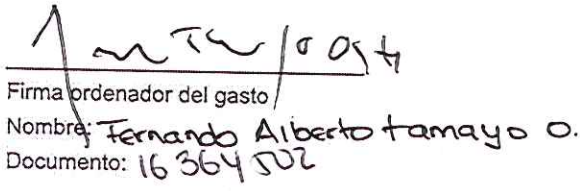 Firma ordenador del gasto
Nombre: Fernando Alberto tamayo O.
Documento: 16364502